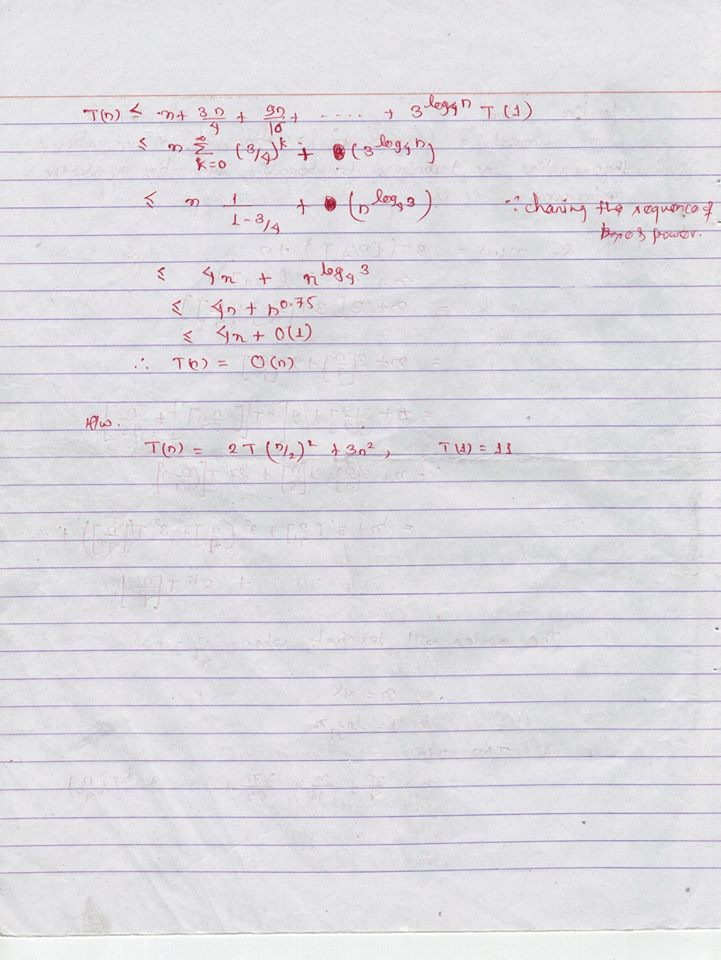 T(n) ≤ n + 3n/4 + 9n/16 + ..... + 3^log₄n T(1)
≤ n ∑_{k=0}^{∞} (3/4)^k + (3^log₄n)
≤ n 1/(1-3/4) + (n^log₄3) ∵ chaning the sequence of power.
≤ 4n + n^log₄3
≤ 4n + n^0.75
≤ 4n + O(1)
∴ T(n) = O(n)
H/w.
T(n) = 2T(n/2)² + 3n², T(1) = 11